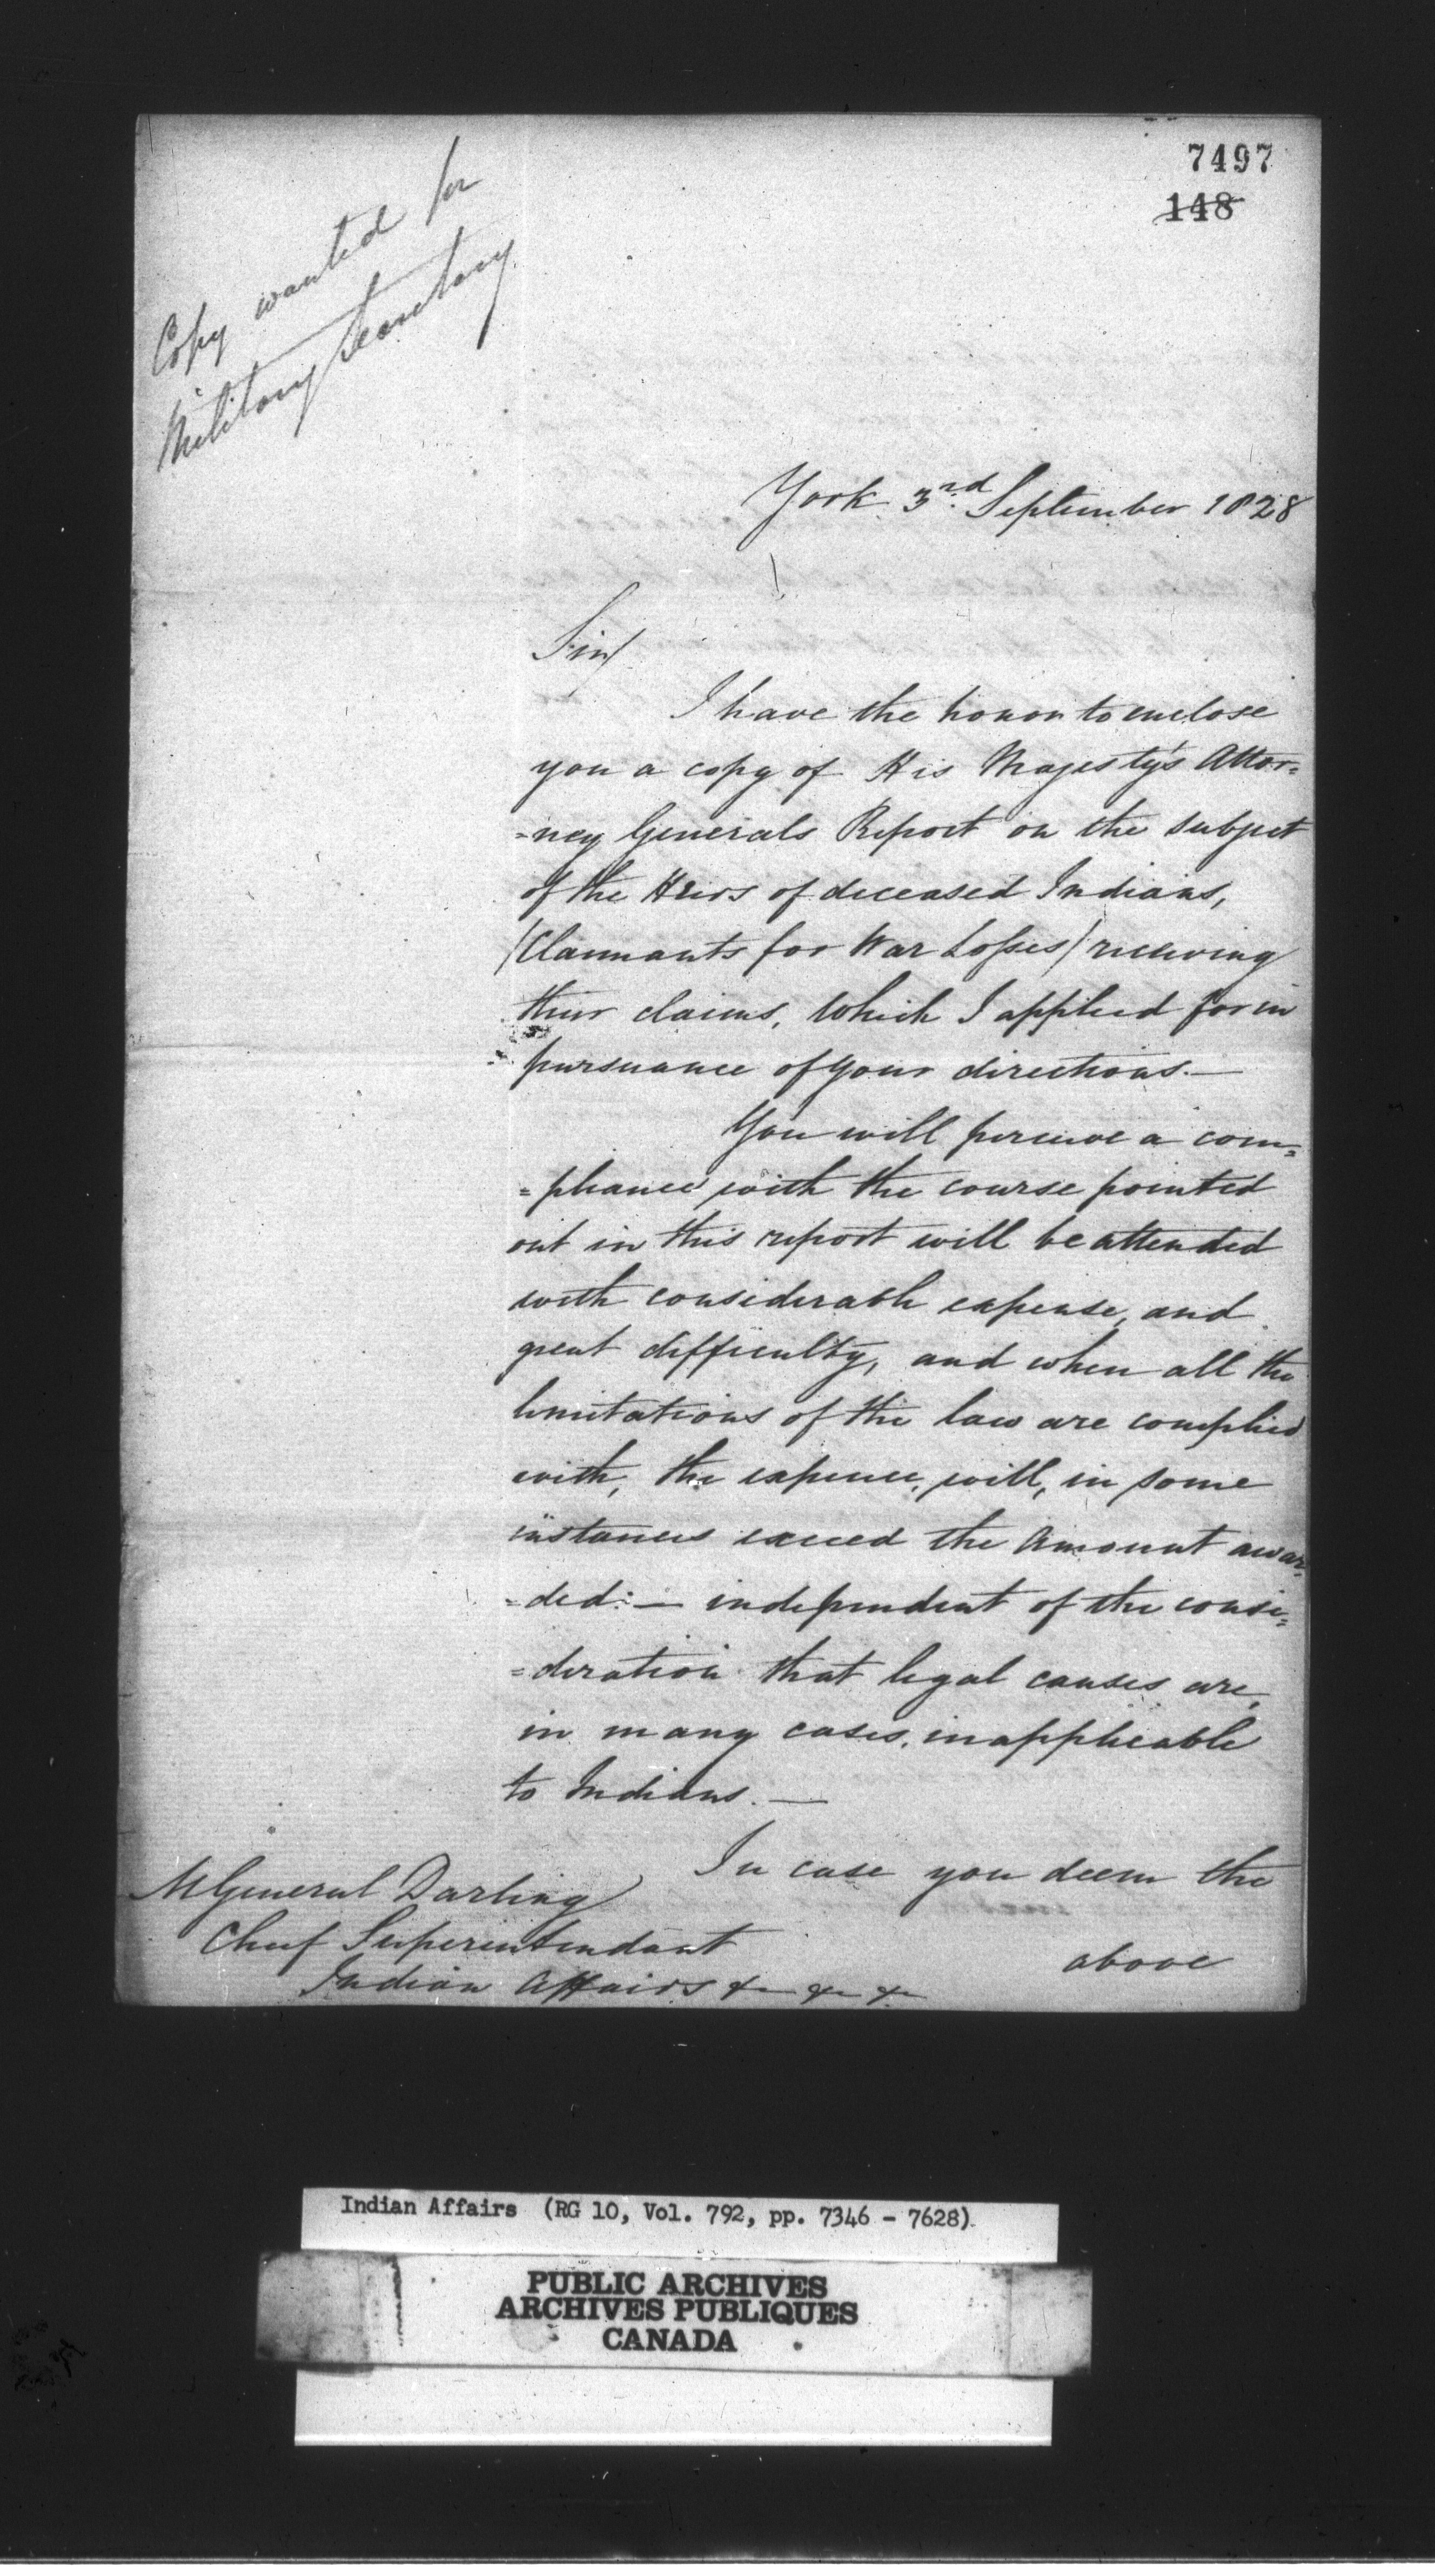 7497
148
Copy wanted for
Military Secretary
York 3rd September 1828
Sir/
I have the honor to enclose
you a copy of His Majesty's Attor=
=ney Generals Report on the subject
of the Heirs of deceased Indians,
/Claimants for War Losses/ receiving
their claims, which I applied for in
pursuance of your directions.—
You will perceive a com=
=pliance with the course pointed
out in this report will be attended
with considerable expense, and
great difficulty, and when all the
limitations of the law are complied
with, the expence, will, in some
instances exceed the Amount awar=
=ded:— independent of the consi=
=deration that legal causes are,
in many cases, inapplicable
to Indians.—
In case you deem the
above
M General Darling
Chief Superintendant
Indian Affairs &c &c &c
Indian Affairs (RG 10, Vol. 792, pp. 7346 - 7628)
PUBLIC ARCHIVES
ARCHIVES PUBLIQUES
CANADA